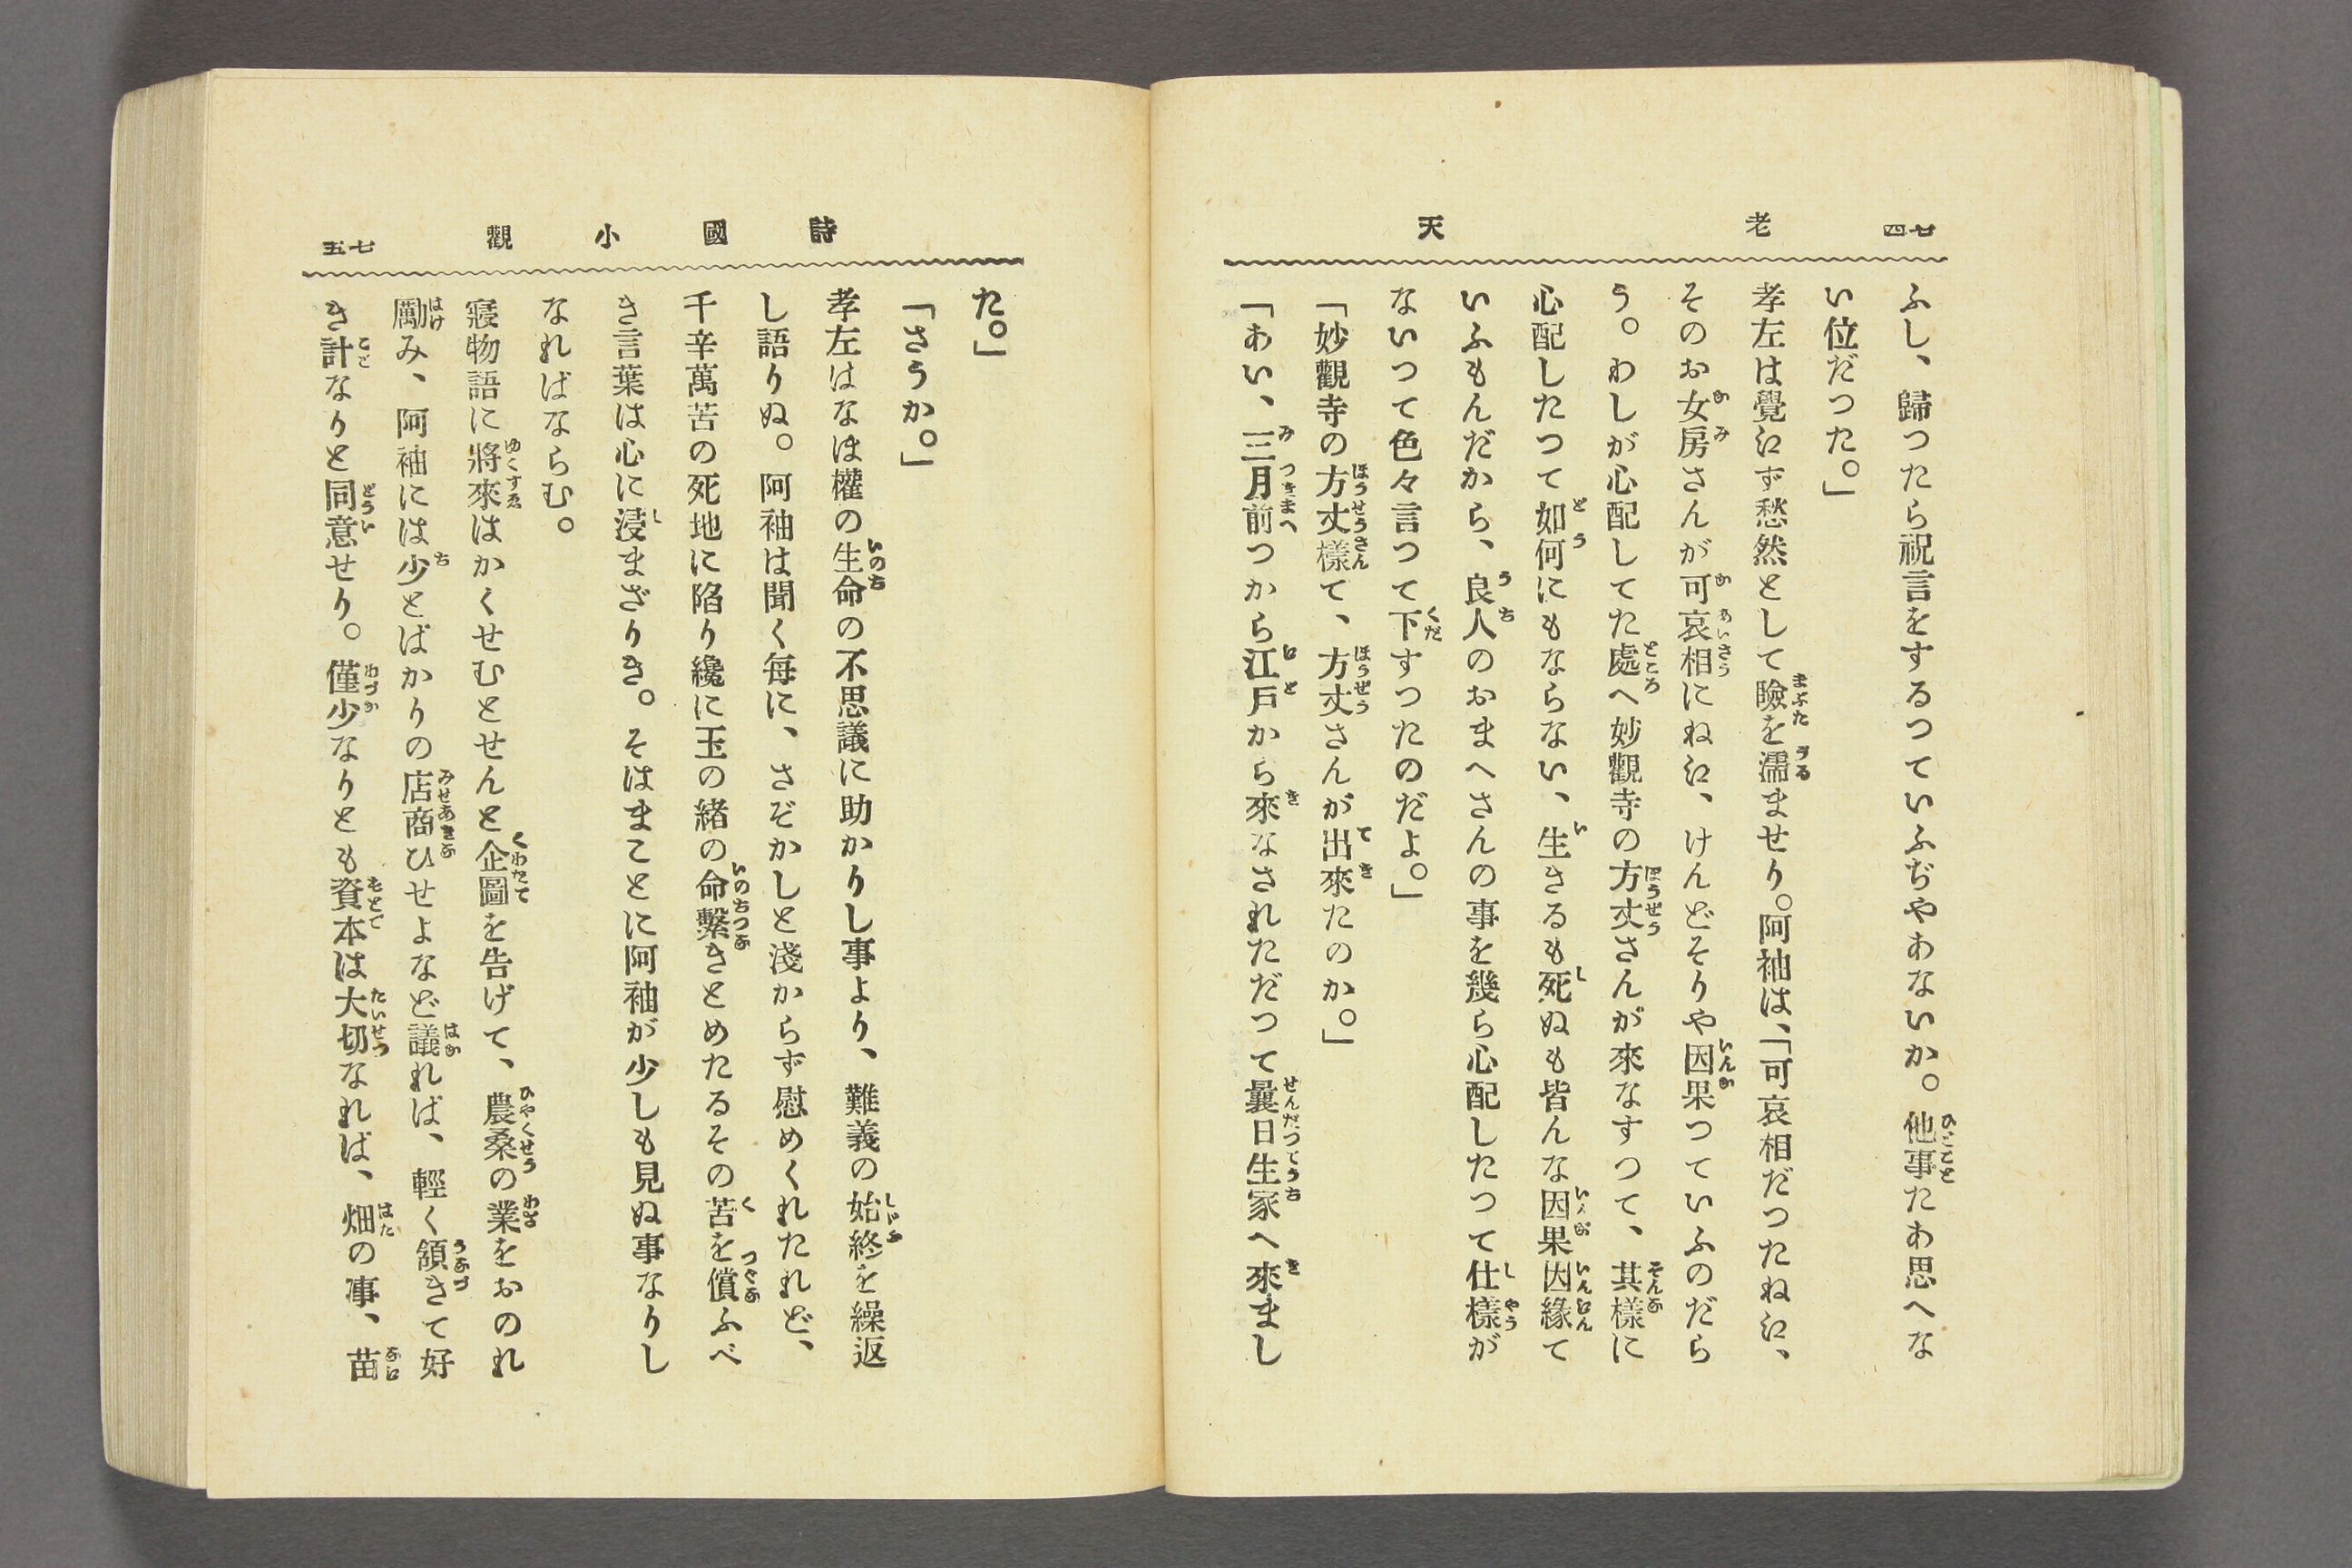 七四
老天
ふし、歸つたら祝言をするつていふぢやあないか。他事たあ思へな
い位だつた。」
孝左は覺えず愁然として瞼を濡ませり。阿袖は、「可哀相だつたねえ、
そのお女房さんが可哀相にねえ、けんどそりや因果つていふのだら
う。わしが心配してた處へ妙觀寺の方丈さんが來なすつて、其樣に
心配したつて如何にもならない、生きるも死ぬも皆んな因果因緣て
いふもんだから、良人のおまへさんの事を幾ら心配したつて仕樣が
ないつて色々言つて下すつたのだよ。」
「妙觀寺の方丈樣て、方丈さんが出來たのか。」
「あい、三月前つから江戸から來なされただつて曩日生家へ來まし
詩國小觀
七五
た。」
「さうか。」
孝左はなほ權の生命の不思議に助かりし事より、難義の始終を繰返
し語りぬ。阿袖は聞く每に、さぞかしと淺からず慰めくれたれど、
千辛萬苦の死地に陷り纔に玉の緒の命繫きとめたるその苦を償ふべ
き言葉は心に浸まざりき。そはまことに阿袖が少しも見ぬ事なりし
なればならむ。
寢物語に將來はかくせむとせんと企圖を告げて、農桑の業をおのれ
勵み、阿袖には少とばかりの店商ひせよなど議れば、輕く頷きて好
き計なりと同意せり。僅少なりとも資本は大切なれば、畑の事、苗